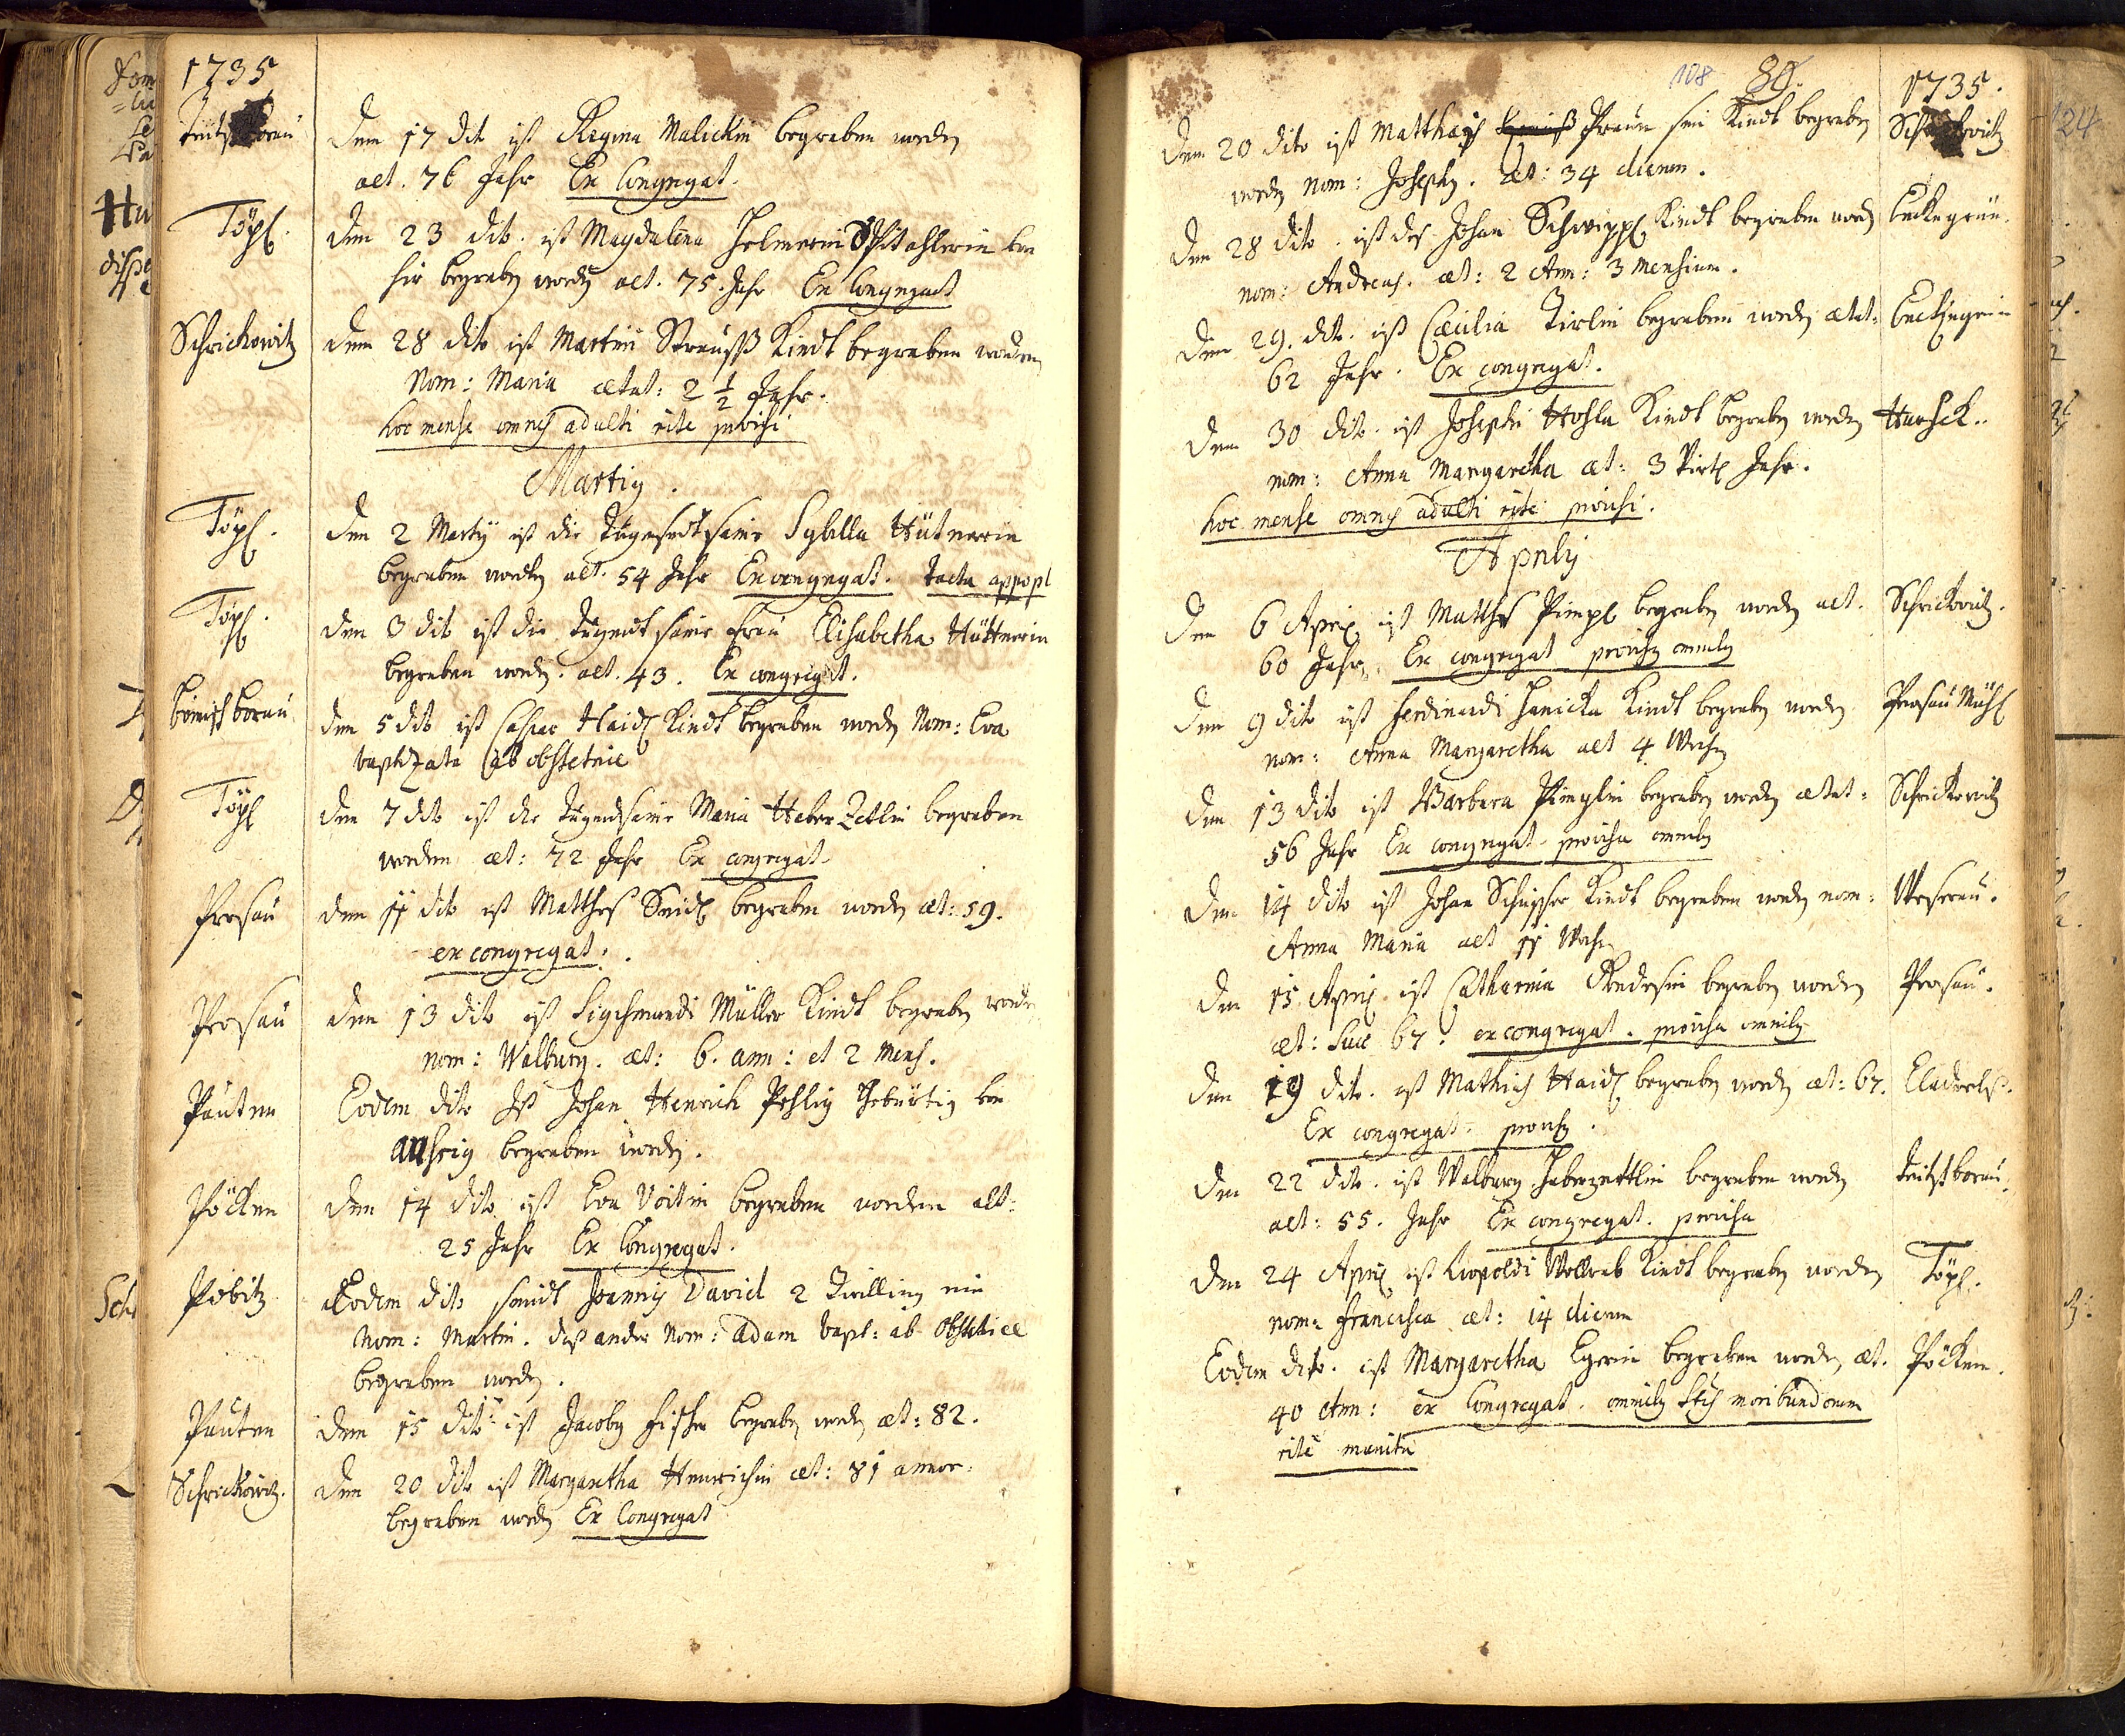 1735
Teütsch
den 17 dit ist Regina Malickin begraben worden
aet. 76 Jahr Ex Congregat.
Töpl.
den 23 dit. ist Magdalena Helmerin Spitahlerin von
hir begraben worden aet. 75. Jahr Ex Congregat
Schrickowitz
den 28 dito ist Martini Strauss Kindt begraben worden
Nom: Maria aetat: 2 1/2 Jahr.
hoc mense omnes adulti rite provisi
Martij.
Töpl.
den 2 Martij ist die Tugendtsame Sybilla Hütnerin
begraben worden aet. 54 Jahr Ex congregat. tacta appopl
Töpl.
den 3 dito ist die Tugendtsame Frau Elisabetha Hüttnerin
begraben worden. aet. 43. Ex congregat.
Bömisch Borau
den 5 dito ist Caspar Haidl Kindt begraben worden Nom: Eva
baptizata ab obstetrice
Töpl
den 7 dito ist die Tugendsame Maria Haberzetlin begraben
worden aet: 72 Jahr Ex congregat
Prosau
den 11 dito ist Matthes Seidl begraben worden aet: 59.
ex congregat:.
Prosau
den 13 dito ist Sigismundi Müller Kindt begraben worden
nom: Walburg. aet: 6. ann: et 2 Mens.
Pauten
Eodem dito Ist Johan Henrich Pehlig Gebürtig von
begraben worden.
Pöcken
den 14 dito ist Eva Voitin begraben worden aet:
25 Jahr Ex Congregat.
Pobitz
Eodem dito seindt Joannis David 2 Zwilling ein
Nom: Martin. das ander Nom: Adam bapt: ab Obstetrice
begraben worden.
Pauten
den 15 dito ist Jacobus Fischer begraben worden aet: 82.
Schrickowitz.
den 20 dito ist Margaretha Henrichin aet: 81 annor:
begraben worden Ex Congregat
108 80. 1735.
den 20 dito ist Matthaeus Praun sein Kindt begraben
worden nom: Joseph. aet: 34 dierum.
den 28 dito. ist des Johan Schwippl Kindt begraben word
nom: Andreas. aet: 2 Ann: 3 Mensium.
den 29. dito. ist Caecilia Tirlin begraben worden aetat:
62 Jahr. Ex congregat.
den 30 dito. ist Josephi Hohla Kindt begraben worden
Hurschk..
nom: Anna Margaretha aet: 3 Virtl Jahr.
hoc mense omnes adulti rite provisi.
Aprilis
den 6 Aprilis ist Matthes Pimpl begraben worden aet.
Schrickowitz.
60 Jahr. Ex congregat provisus omnibus
den 9 dito ist Ferdinandi Hanicka Kindt begraben worden
Prosau Mühl
nom: Anna Margaretha aet 4 Wochen
den 13 dito ist Barbara Pimplin begraben worden aetat:
Schrickowitz
56 Jahr Ex congregat provisa omnibus
den 14 dito ist Johan Kindt begraben worden nom:
Weserau.
Anna Maria aet 11 Wochen
den 15 Aprilis ist Catharina Endresin begraben worden
Prosau.
aet: suae 67. ex congregat. provisa omnibus
den 19 dito. ist Mathias Haidl begraben worden aet: 67.
Ex congregat. provisus.
den 22 dito. ist Walburg Haberzettlin begraben worden
Teütsch borau.
aet: 55. Jahr Ex congregat. provisa
den 24 Aprilis ist Leopoldi Wollrab Kindt begraben worden
Töpl.
nom: Francisca aet: 14 dierum
Eodem dito. ist Margaretha Egerin begraben worden, aet.
Pöcken.
40 Ann: ex Congregat. omnibus Stis moribundorum
rite munita
124